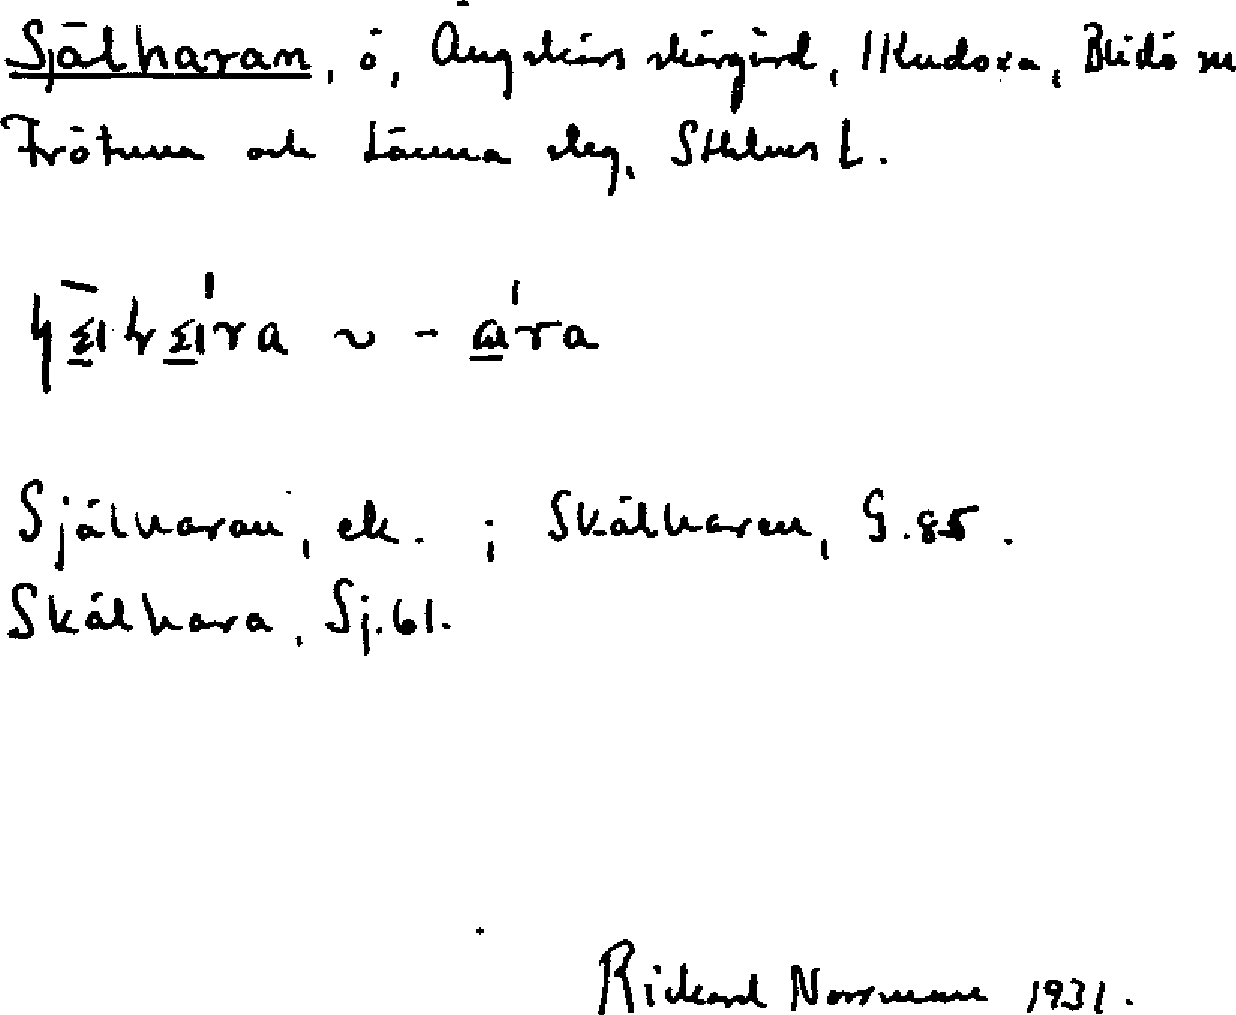 Själharan, ö, Ängskärs skärgård, Blidö sn
Frötuna och Länna skg, Sthlms l.
Själharan, ek. ; Skälharen, G.85.
Skälhara, Sj.61.
Rickard Norrman 1931.